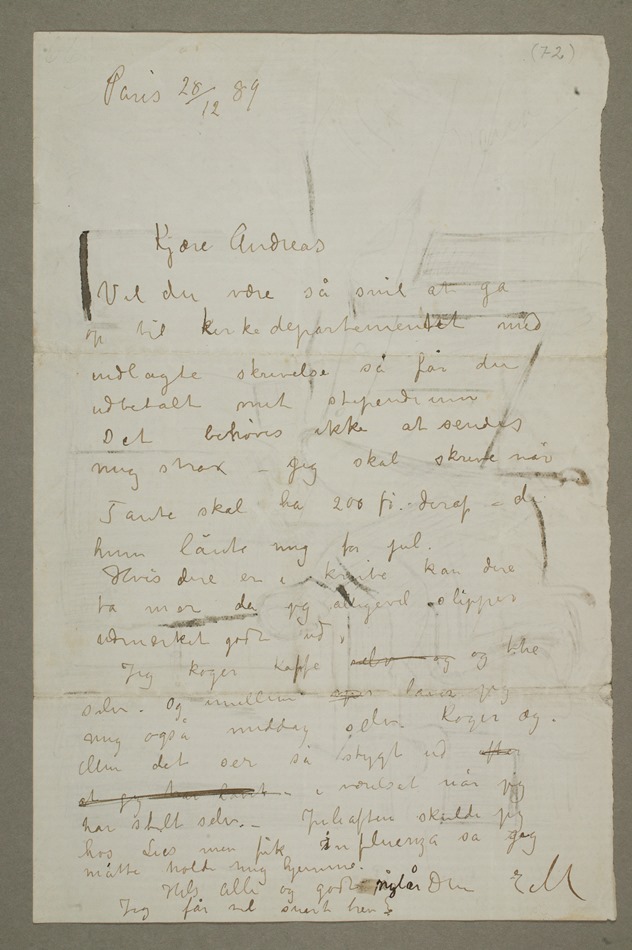 (72)
Paris 28/12 89
Kjære Andreas
Vil du være så snil at gå
op til kirkedepartementet med
indlagte skrivelse så får du
udbetalt mit stipendium
Det behøves ikke at sendes
mig strax – jeg skal skrive når
Tante skal ha 200 fr. deraf – de
hun lånte mig før jul.
Hvis dere er i knibe kan dere
ta mer da jeg alligevel slipper
udmærket godt ud.
Jeg koger kaffe selv og og the
selv. Og imellem laver jeg
mig også middag selv. Koger æg.
Men det ser så stygt ud efter
at jeg har kokt – i værelset når jeg
har stelt selv. – Juleaften skulde jeg
hos Lies men fik Influenza så jeg
måtte holde mig hjemme.
Hils alle og godt nytår Din EM
Jeg får vel snart brev?